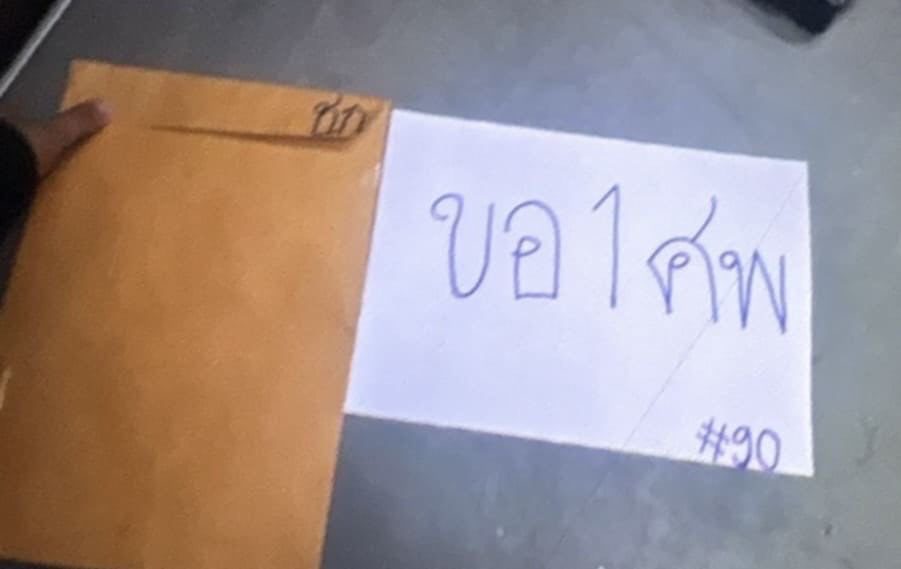 ชก
ขอ 1 ศพ
#90